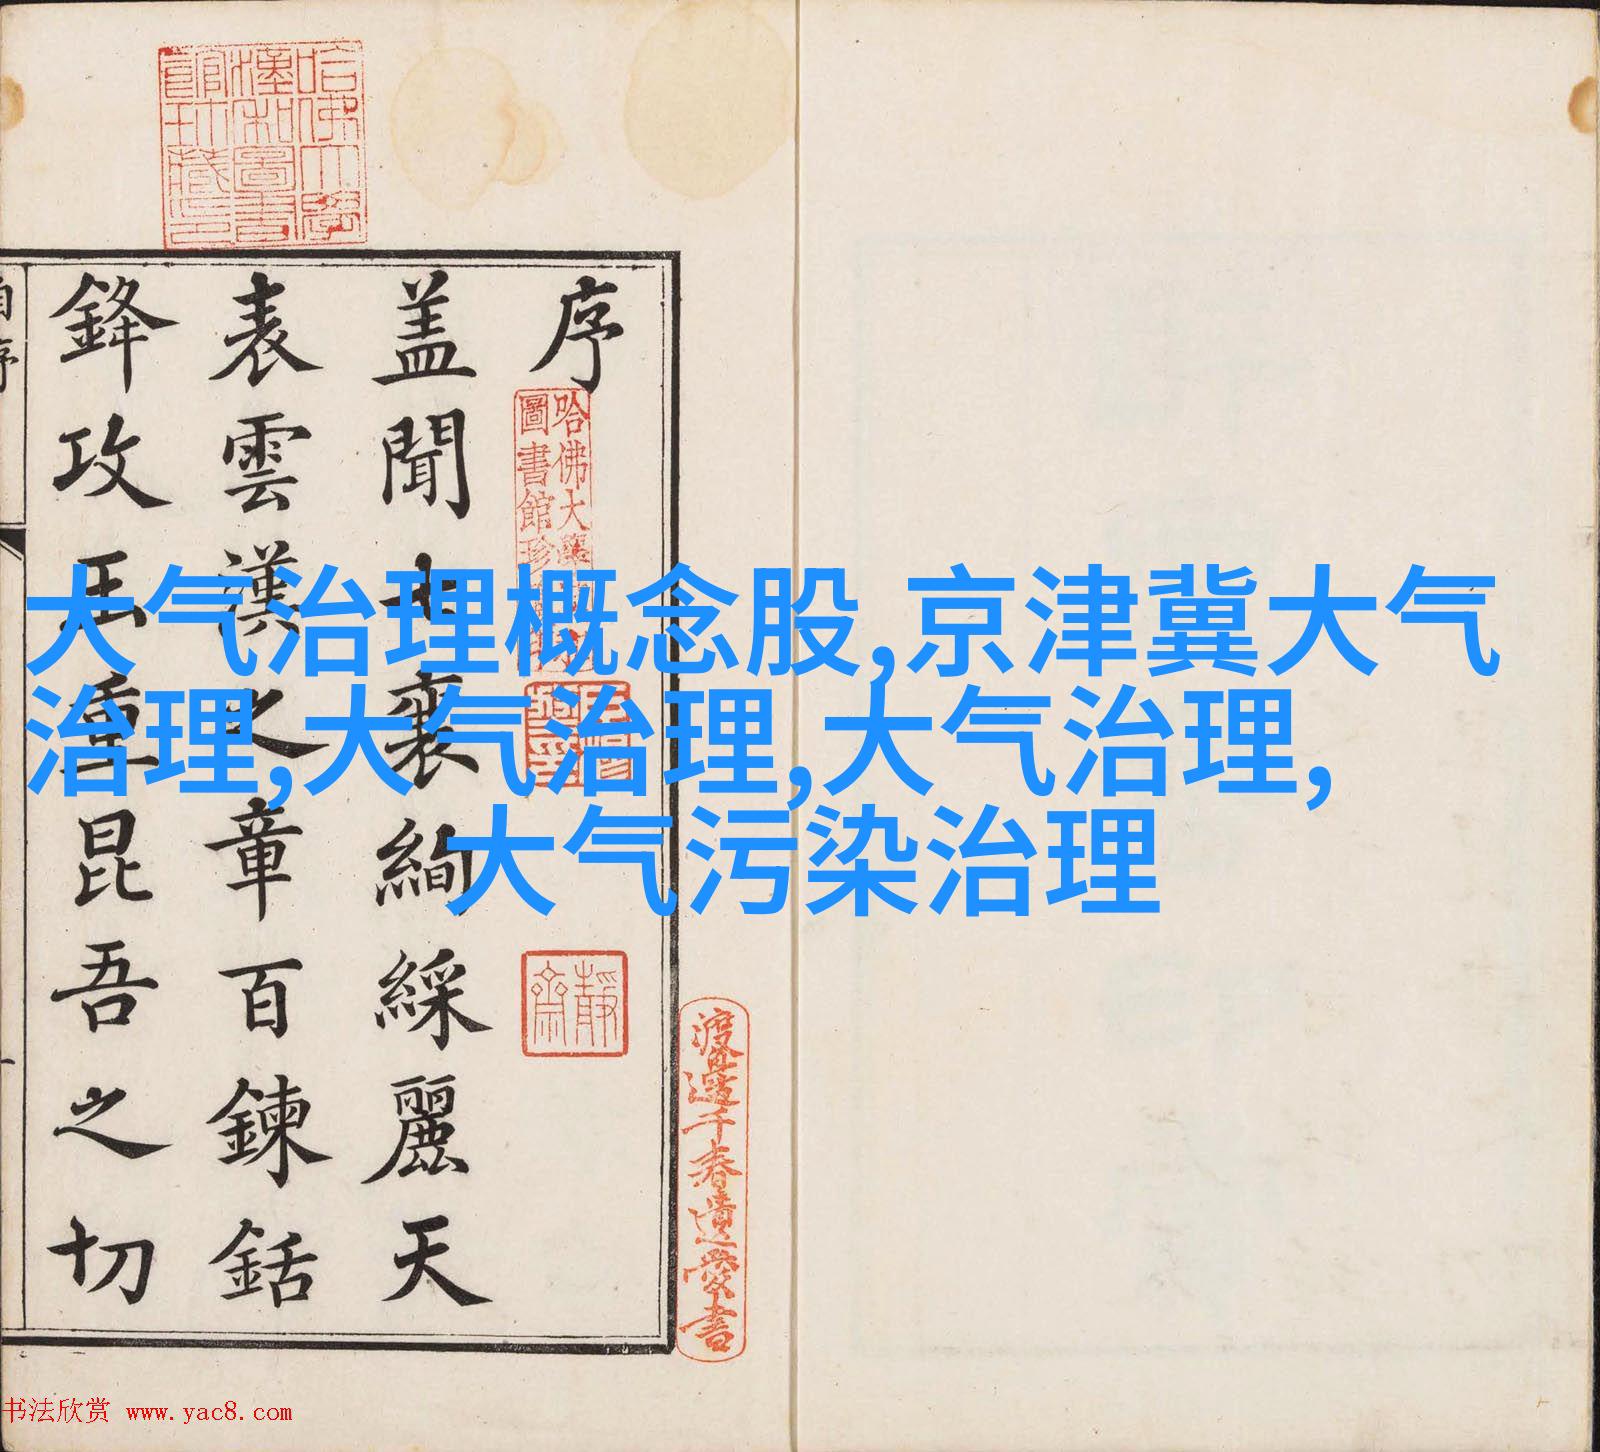 哈佛大學
漢和圖書
館珍藏印
序
哈佛大學
圖書館珍
靜齋
蓋聞七襄絢綵麗天
表雲漢之章百鍊銛
鋒攻玉重昆吾之切
自序
渡邊千春遺愛書
大气治理概念股,京津冀大气
治理,大气治理,大气治理,
大气污染治理
书法欣赏 www.yac8.com